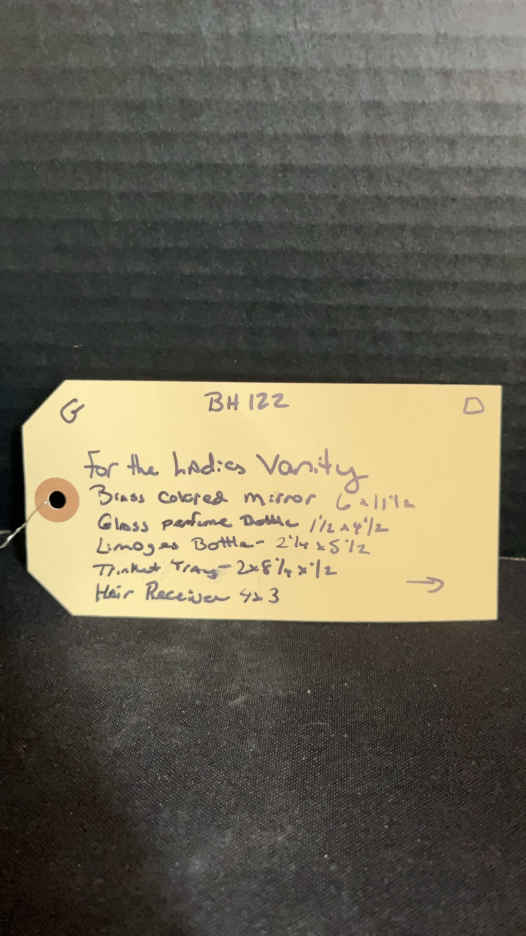 G BH 122 D
For the Ladies Vanity
Brass colored mirror 6 x 11 1/2
Glass perfume Bottle 1 1/2 x 4 1/2
Limoges Bottle - 2 1/4 x 5 1/2
Trinket Tray - 2 x 8 1/4 x 1/2
Hair Receiver 4 x 3 →